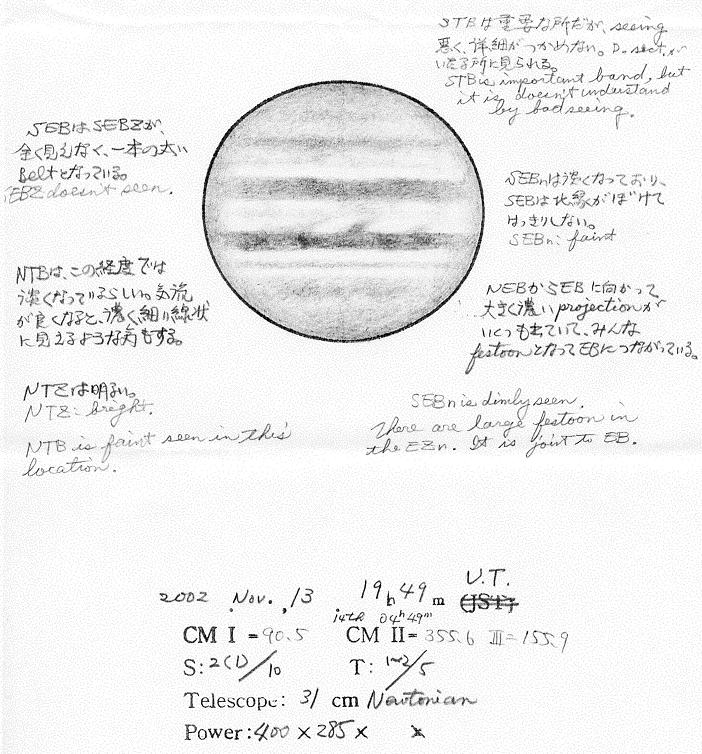 STBは重要な所だが、seeing
悪く、詳細がつかめない。D. sect.が
いたる所に見られる。
STB is important band, but
it is doesn't understand
by bad seeing.
SEBはSEBZが、
全く見えなく、一本の太い
Beltとなっている。
SEBZ doesn't seen.
SEBnは淡くなっており、
SEBは北縁がぼけて
はっきりしない。
SEBn: faint
NTBは、この経度では
淡くなっているらしい。気流
が良くなると、濃く細い線状
に見えるような気もする。
NEBからEBに向かって
大きく濃いprojectionが
いくつも出ていて、みんな
festoonとなってEBにつながっている。
NTZは明るい。
NTZ: bright.
NTB is faint seen in this
location.
SEBn is dimly seen.
There are large festoon in
the EZn. It is joint to EB.
2002 Nov. 13 19h 49m U.T.
(JST)
14th 04h 49m
CM I = 90.5 CM II = 355.6 III = 155.9
S: 2(1)/10 T: 1~2/5
Telescope: 31 cm Newtonian
Power: 400 × 285 × ×